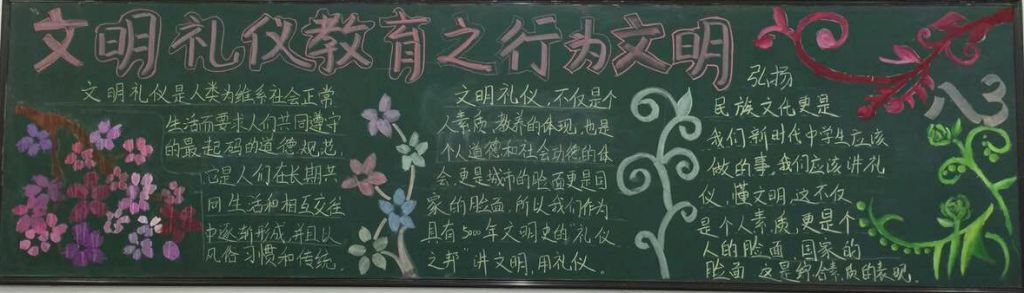 文明礼仪教育之行为文明
八3
文明礼仪是人类为维系社会正常
生活而要求人们共同遵守
的最起码的道德规范,
它是人们在长期共
同生活和相互交往
中逐渐形成,并且以
风俗习惯和传统.
文明礼仪,不仅是个
人素质、教养的体现,也是
个人道德和社会功德的体
会,更是城市的脸面更是国
家的脸面.所以我们作为
具有5000年文明史的“礼仪
之邦”讲文明,用礼仪.
弘扬
民族文化更是
我们新时代中学生应该
做的事,我们应该讲礼
仪,懂文明,这不仅
是个人素质,更是个
人的脸面 国家的
脸面 这是综合素质的表现.